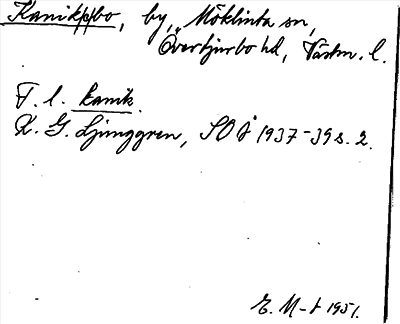 Kanik(s)bo, by, Möklinta sn,
Övertjurbo hd, Västm. l.
F. l. kanik.
K. G. Ljunggren, SOÅ 1937-39 s. 2.
E. M-t 1951.